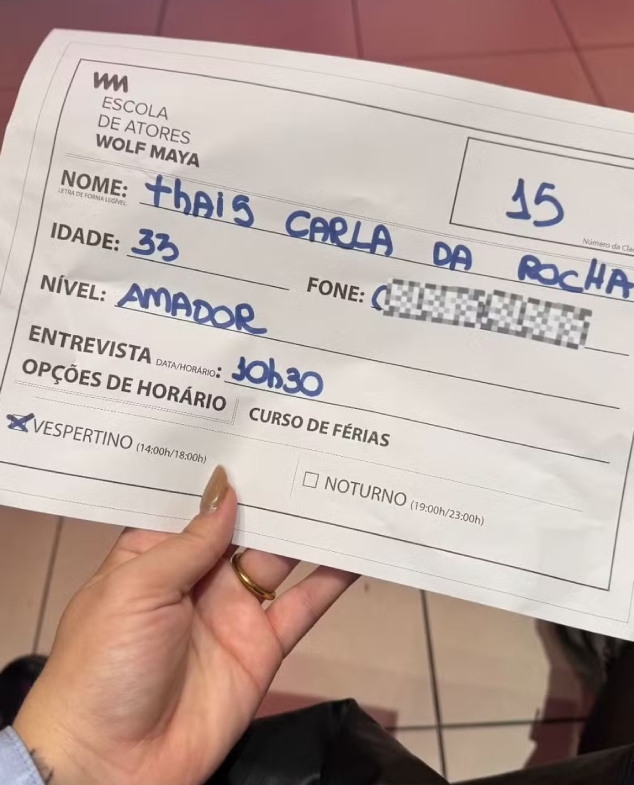 WM
ESCOLA
DE ATORES
WOLF MAYA
15
Número da
NOME: thAIS CARLA DA ROCHA
LETRA DE FORMA LEGÍVEL
IDADE: 33
FONE: (
NÍVEL: AMADOR
ENTREVISTA DATA/HORÁRIO: 10h30
OPÇÕES DE HORÁRIO CURSO DE FÉRIAS
X VESPERTINO (14:00h/18:00h)
NOTURNO (19:00h/23:00h)